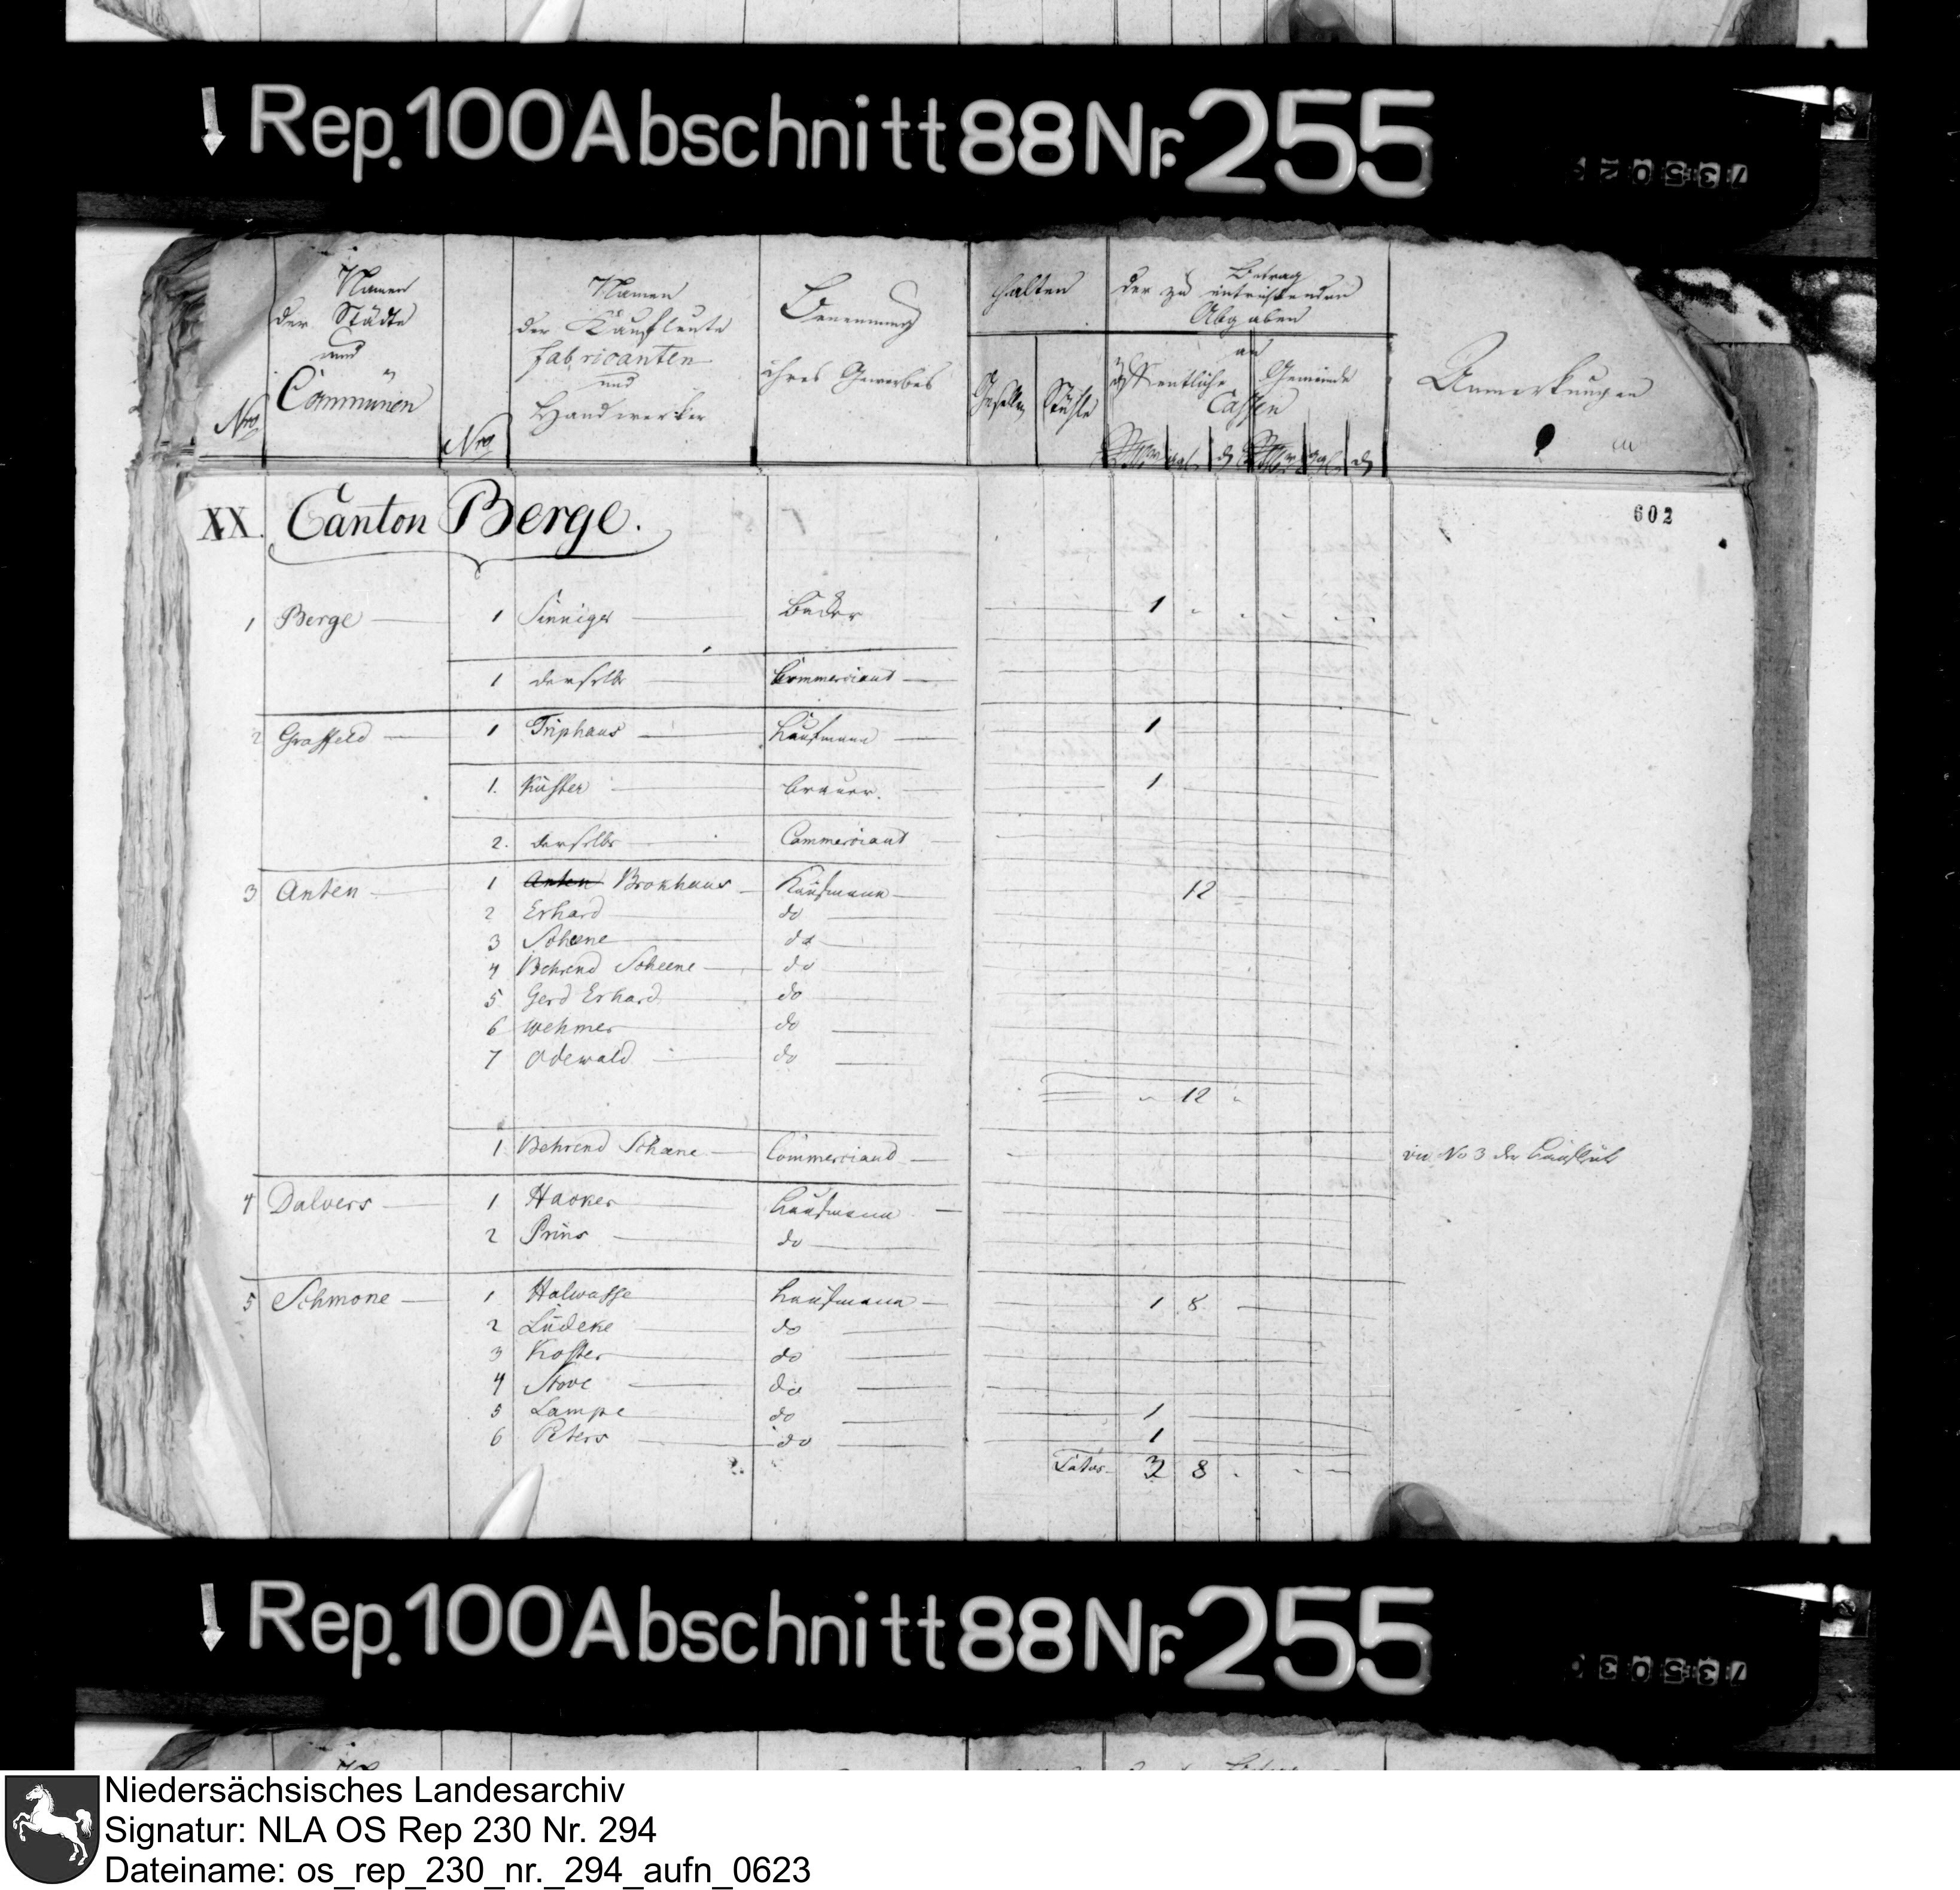 Rep. 100 Abschnitt 88 Nr. 255
Nro
Namen
der Städte
und
Communen
Nro
Namen
der Kaufleute
fabricanten
und
Handwerker
Benennung
ihres Gewerbes
halten
Gesellen Stühle
Betrag
der zu entrichtenden
Abgaben
an
öffentliche Gemeinde
Cassen
Anmerkungen
602
XX. Canton Berge.
1 Berge 1 Sinniger 1
1 derselbe Commerciant
2 Graffeld 1 Triphaus Kaufmann 1
1. Küster brauer. 1
2. derselbe Commerciant
3 Anten 1 Anten Brokhaus Kaufmann 12
2 Erhard do
3 Scheene do
4 Behrend Scheene do
5 Gerd Erhard do
6 Wehmer do
7 Odewald do
" 12 "
1 Behrend Scheene Commerciant No 3 der
4 Dalvers 1 Hacker Kaufmann
2 Prins do
5 Schmone 1 Halwasse Kaufmann 1 8
2 Lüdeke do
3 Koster do
4 Stove do
5 Lampe do 1
6 Peters do 1
Latus 3 8
Rep. 100 Abschnitt 88 Nr. 255
Niedersächsisches Landesarchiv
Signatur: NLA OS Rep 230 Nr. 294
Dateiname: os_rep_230_nr._294_aufn_0623